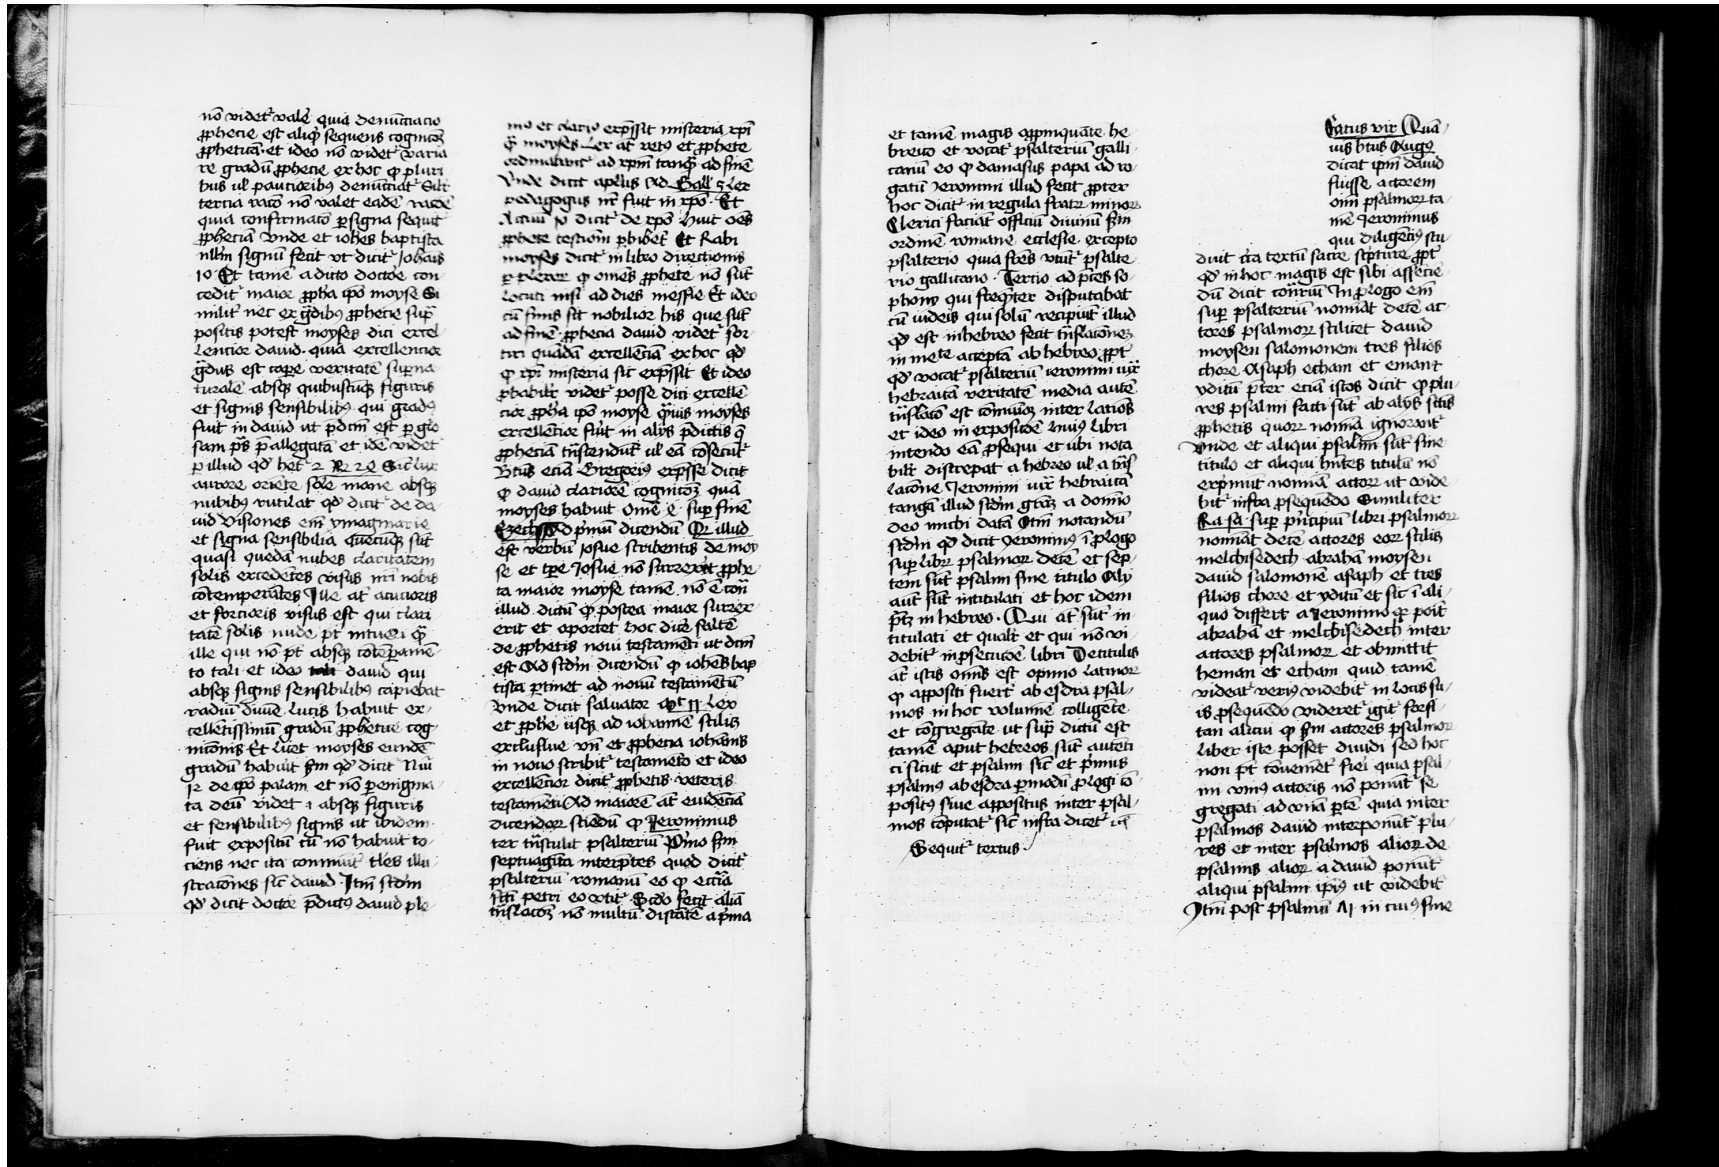 nō videt̄ valē quia denūctiacio
ꝓphecie est aliqͥ sequens cognicōꝫ
ꝓpheticā· et ideo nō videt̄ varia
re gradū ꝓphecie ex hoc ꝙ pluri
bus ul paucioribꝰ denūciat̄ Silr̄
tercia racō nō valet eadē racōe
quia confirmacō ꝑ signa sequit̄
ꝓpheciā vnde et ioh̄es baptista
nllm̄ signū fecit ut dicit Joh̄ais
10 Et tamē a dicto doctore con
cedit̄ maior ꝓph̄a ip̄o moyse Si
milit̄ nec ex gͣdibꝰ ꝓphecie supͣ
positis potest moyses dici excel
lencior david· quia excellencior
gͣdus est caꝑe veritatē suꝑna
turalē absqꝫ quibuscūqꝫ figuris
et signis sensibilibꝰ qui gradꝰ
fuit in david ut p̄dcm̄ est ꝑ glo
sam p̄s p̄allegatā et idē videt̄
ꝑ illud qd̄ het̄ 2 R 2ꝫ Sic̄ lux
aurore oriēte sole mane absqꝫ
nubibꝰ rutilat qd̄ dicit̄ de da
uid Visiones em̄ ymaginarie
et signa sensibilia quecūqꝫ sūt
quasi quedā nubes claritatem
solis excedētes visus nr̄i nobis
cōtemperātes Ille at̄ acucioris
et forcioris visus est qui clari
tatē solis nude pt̄ intueri qͣ
ille qui nō pt̄ absqꝫ cōteꝑamē
to tali et ideo david qui
absqꝫ signis sensibilibꝰ capiebat
radiū diuīe lucis habuit ex-
cellētissimū gradū ꝓphetice cog
nicōnis Et licet moyses eundē
gradū habuit s̄m qd̄ dicit̄ Nūi
12 de ip̄o palam et nō ꝑ enigma
ta deū videt ⁊ absqꝫ figuris
et sensibilibꝰ signis ut ibidem
fuit expositū tn̄ nō habuit to
ciens nec ita cōmuīt̄ tl̄es illu
straciōnes sic̄ david Itm̄ scd̄m
qd̄ dicit doctor p̄dictꝰ david ple
nio et clario exp̄ssit misteria xp̄i
qͣ moyses Lex at̄ vetꝰ et ꝓphete
ordinabant̄ ad xp̄m tanqͣ ad finē
Vnde dicit apl̄us Ad Gall̄ 3 Lex
pedagogus nr̄ fuit in xp̄o Et
Actuū 10 dicit̄ de xp̄o huic oēs
ꝓphete testiōm ꝑhibēt Et Rabi
moyses dicit in libro directionis
ꝑplexor̄ ꝙ omēs ꝓphete nō sūt
locuti nisi ad dies messie Et ideo
cū finis sit nobilior his que sūt
ad finē ꝓphecia david videt̄ sor
tiri quādā excellēciā ex hoc qd̄
ꝙ xp̄i misteria sic̄ exp̄ssit Et ideo
ꝓbabilit̄ videt̄ posse dici excellē
cior ꝓph̄a ip̄o moyse qͣuis moyses
excellēcior fuit in alijs p̄dictis qͥ
ꝓpheciā trn̄scendūt̄ ul eā cōsecūt̄
Btūs eciā Gregorius exp̄sse dicit
ꝙ david clariorē cognicōꝫ quā
moyses habuit Omē 2 sup̄ finē
Ezech̄ Ad pͥmū dicendū Qꝛ illud
est verbū Josue scribentis de moy
se et tꝑe Josue nō surrexit ꝓphe
ta maior moyse tamē nō ē conͣ
illud dictū ꝙ postea maior surrex
erit et oportet hoc dicē saltē
de ꝓphetis noui testamēti ut dcm̄
est Ad scd̄m dicendū ꝙ ioh̄es bap
tista ꝑtinet ad nouū testamētū
Vnde dicit saluator Mͭ 11 Lex
et ꝓphe usqꝫ ad iohannē scilicꝫ
exclusiue vn̄ et ꝓphecia ioh̄annis
in nouo scribit̄ testamēto et ideo
excellēcior dicit̄ ꝓphetis veteris
testamēti Ad maiorē at̄ euidēciā
dicendor̄ sciēdū ꝙ Jeronimus
ter trn̄stulit psalteriū Pͥmo s̄m
septuaginta interp̄tes quod dicit̄
psalteriū romanū eo ꝙ ecc̄ia
sc̄ti petri eo vtit̄ Scd̄o fecit aliā
trn̄slacōꝫ nō multū distātē a pͥma
et tamē magis aꝓpinquātē he
breico et vocat̄ psalteriū galli
canū eo ꝙ damasus papa ad ro
gatū Jeronimi illud fecit ꝓpter
hoc dicit̄ in regula fratr̄ minor̄
Clerici faciāt officiū diuinū s̄m
ordinē romane ecclesie· excepto
psalterio quia fr̄es vtūt̄ psalte
rio gallicano · Tercio ad p̄ces so
phonij qui freqͣter disputabat
cū iudeis qui solū recipiūt illud
qd̄ est in hebreo fecit trn̄slaconeꝫ
in mete acceptā ab hebreo ꝓpt̄
qd̄ vocat̄ psalteriū ieronimi iux̄
hebraicā veritatē media autē
trn̄slacō est cōmuīoꝫ inter latīos
et ideo in exposicōe huiꝰ libri
intendo eā ꝓsequi et ubi nota
bilit̄ discrepat a hebreo ul a trn̄s
lacōne Jeronimi iux̄ hebraicā
tangā illud scd̄m grām a domīo
deo michi datā Itm̄ notandū
scd̄m qd̄ dicit Jeronimꝰ ī ꝓlogo
suꝑ libr̄ psalmor̄ decē et sep-
tem sūt psalmi sine titulo Alij
aūt sūt intitulati et hoc idem
ptꝫ in hebreo · Qui at̄ sūt in
titulati et qualit̄ et qui nō vi
debit̄ in ꝓsecucōe libri De titulis
at̄ istis om̄is est opinio latinor̄
ꝙ appositi fuerūt ab esdra psal-
mos in hoc volumīe colligēte
et cōgregāte ut supͣ dictū est
tamē aput hebreos sūt autēti
ci sicut et psalmi sic̄ et pͥmus
psalmꝰ ab esdra ꝑ modū ꝓlogi cō
positꝰ siue appositus inter psal-
mos cōputat̄ sic̄ infra dicet̄
Sequit̄ textus
Eatus vir Quā-
uis btūs Augꝰ
dicat ip̄m dauid
fuisse actorem
om̄ psalmor̄ ta
mē Jeronimus
qui diligēciꝰ stu
duit cͥca textū sacre scͥpture ꝓpt̄
qd̄ in hoc magis est sibi assētiē
dū dicit cōnͣriū In ꝓlogo em̄
suꝑ psalteriū nomīat decē ac-
tores psalmor̄ scilicet dauid
moysen salomonem tres filios
chore Asaph echam et emant
yditū p̄ter eciā istos dicit ꝙ plu-
res psalmi facti sūt ab alijs sc̄tis
ꝓphetis quor̄ nomīa ignoravit
Vnde et aliqui psalmi sūt sine
titulo et aliqui hn̄tes titulū nō
expͥmūt nomīa actor̄ ut vide
bit̄ infra ꝓsequēdo Similiter
Ra Sa sup̄ pͥncipiū libri psalmor̄
nomīat decē actores eor̄ scilicꝫ
melchisedech abrahā moysen
dauid salomonē asaph et tres
filios chore et yditū et sic ī ali-
quo differt a Jeronimo qꝛ poit̄
abrahā et melchisedech inter
actores psalmor̄ et obmittit
heman et echam quid tamē
videat̄ veriꝰ videbit̄ in locis su-
is ꝓsequēdo videret̄ igit̄ forsi-
tan alicui ꝙ s̄m actores psalmor̄
liber iste posset diuidi sed hoc
non pt̄ cōuenīet̄ fieri quia psal-
mi vniꝰ actoris nō ponūt̄ se
gregati ad vnā ꝑtē quia inter
psalmos dauid interponūt̄ plu
res et inter psalmos alior̄ de
psalmis alior̄ a dauid ponūt̄
aliqui psalmi ip̄iꝰ ut videbit̄
Itm̄ post psalmū 71 in cuiꝰ fine